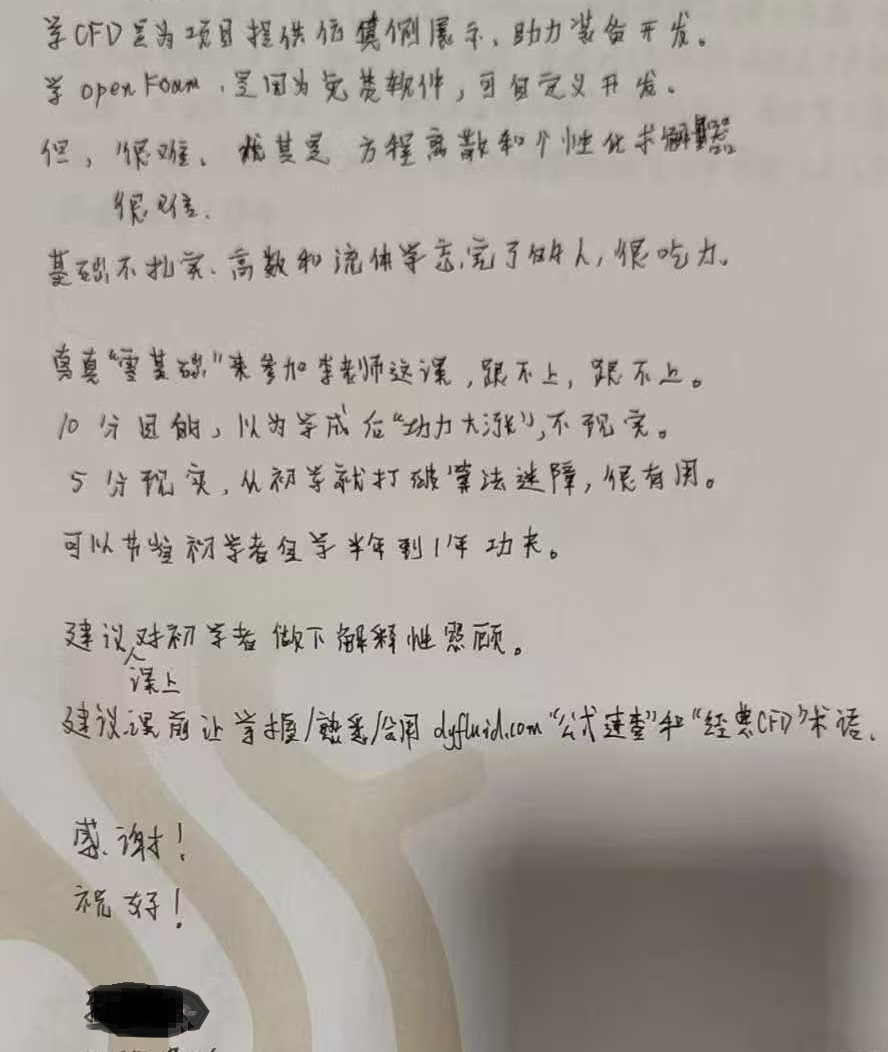 学CFD是为项目提供仿真例展示、助力装备开发。
学openFoam,是因为免费软件,可自定义开发。
但,很难、尤其是 方程离散和个性化求解器
很难.
基础不扎实、高数和流体学忘完了的人,很吃力。
真真“零基础”来参加李老师这课,跟不上,跟不上。
10分目的,以为学成后“功力大涨”,不现实。
5分现实,从初学就打破算法迷障,很有用。
可以节省初学者自学半年到1年功夫。
建议对初学者做下解释性照顾。
课上
建议课前让学 /熟悉/会用dyfluid.com“公式速查”和“经典CFD”术语.
感谢!
祝好!